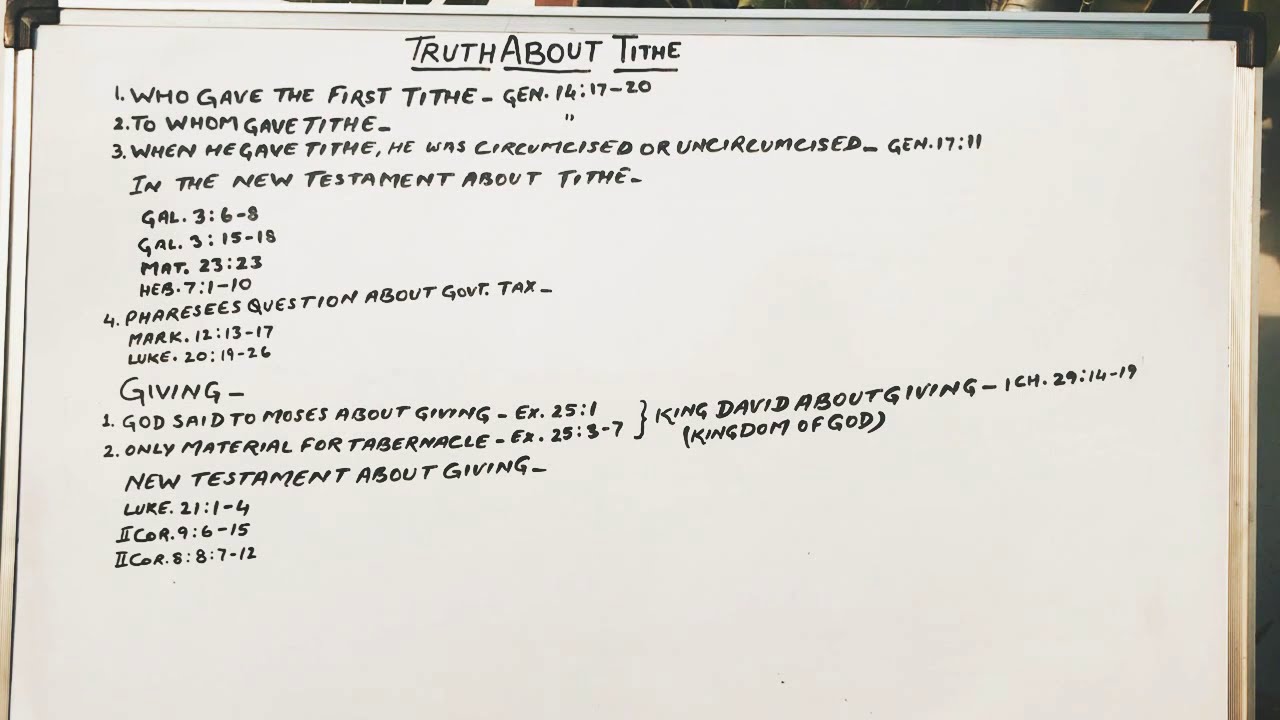 TRUTH ABOUT TITHE
1. WHO GAVE THE FIRST TITHE - GEN. 14:17-20
2. TO WHOM GAVE TITHE - "
3. WHEN HE GAVE TITHE, HE WAS CIRCUMCISED OR UNCIRCUMCISED - GEN. 17:11
IN THE NEW TESTAMENT ABOUT TITHE -
GAL. 3:6-8
GAL. 3:15-18
MAT. 23:23
HEB. 7:1-10
4. PHARESEES QUESTION ABOUT GOVT. TAX -
MARK. 12:13-17
LUKE. 20:19-26
GIVING -
1. GOD SAID TO MOSES ABOUT GIVING - EX. 25:1
2. ONLY MATERIAL FOR TABERNACLE - EX. 25:3-7
} KING DAVID ABOUT GIVING - 1 CH. 29:14-19
(KINGDOM OF GOD)
NEW TESTAMENT ABOUT GIVING -
LUKE. 21:1-4
II COR. 9:6-15
II COR. 8:8:7-12